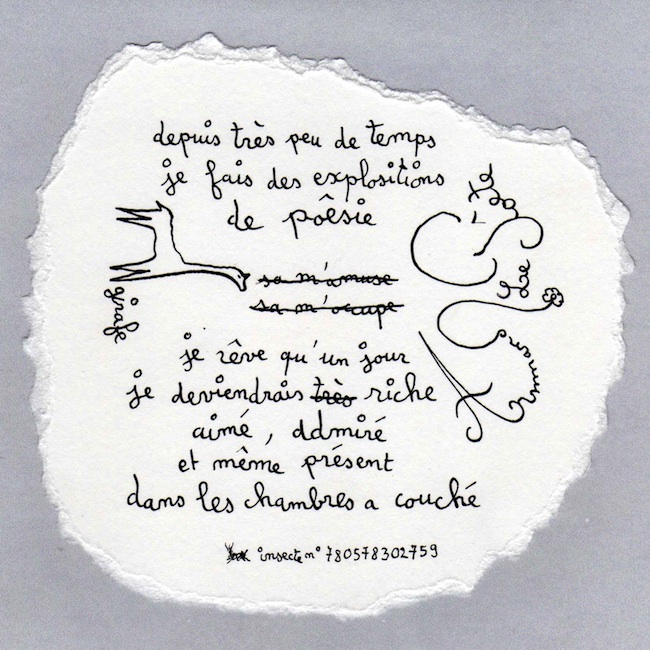 depuis très peu de temps
je fais des explositions
de pôésie
sa m'amuse
sa m'occupe
je rêve qu'un jour
je deviendrais très riche
aimé, ddmiré
et même présent
dans les chambres a couché
insecte n° 780578302759
girafe